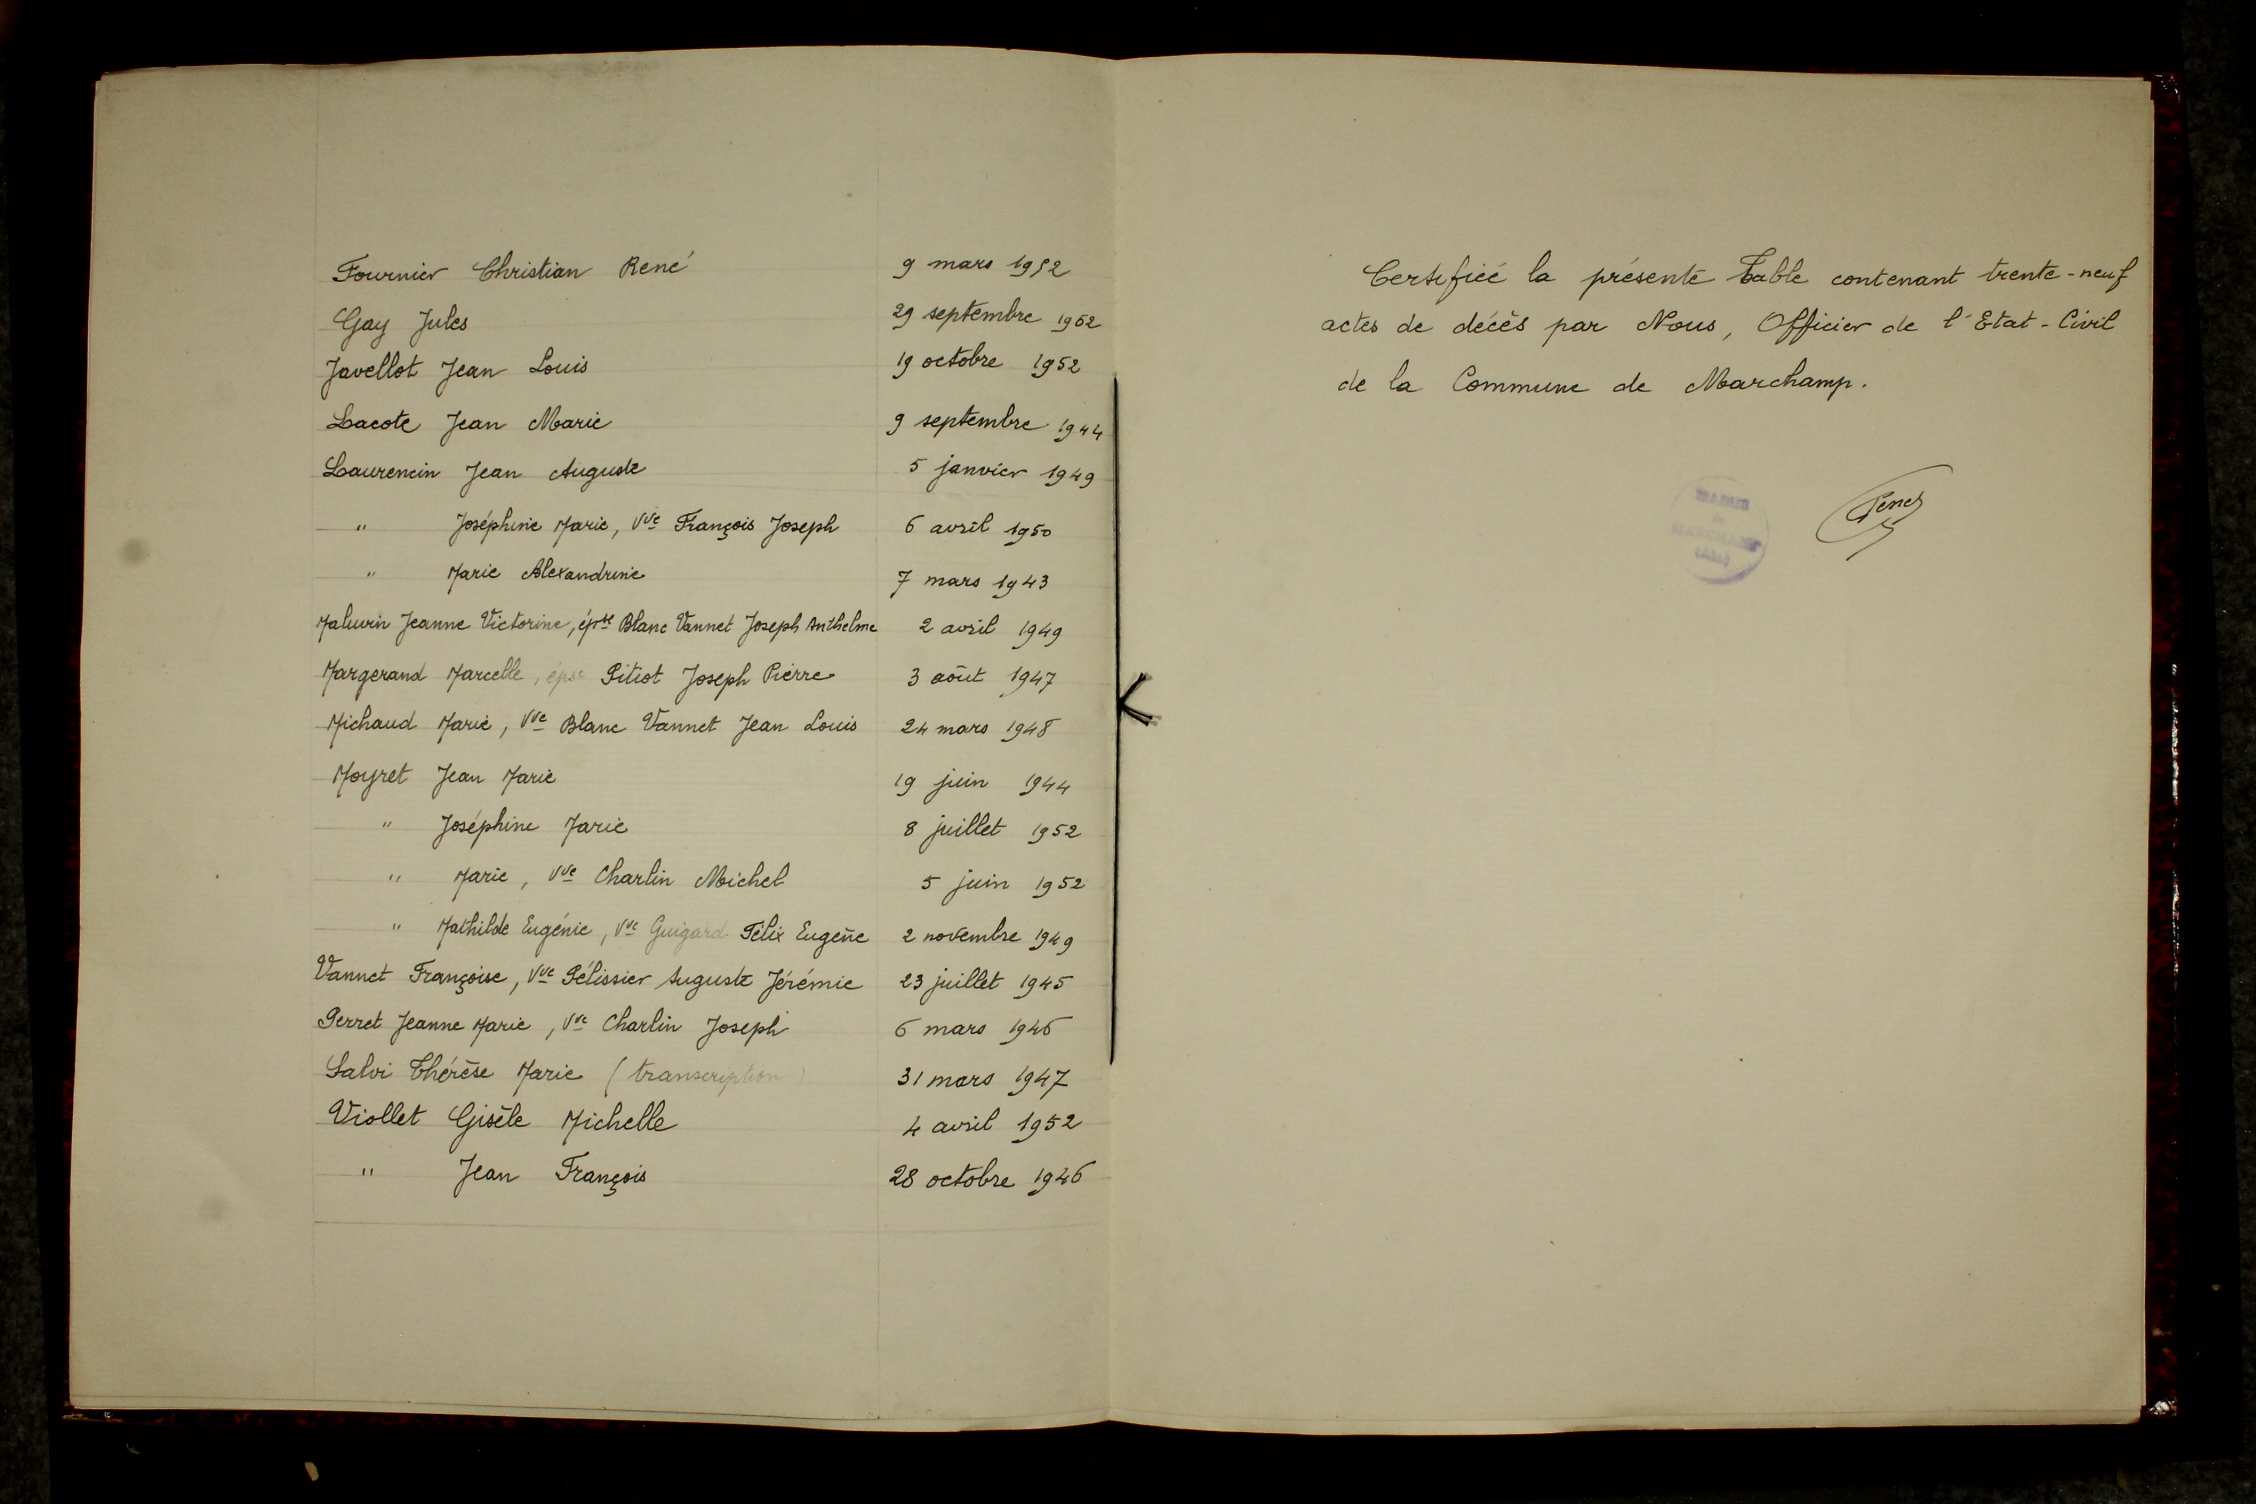 Fournier Christian René 9 mars 1952
Gay Jules 29 septembre 1952
Javellot Jean Louis 19 octobre 1952
Lacote Jean Marie 9 septembre 1944
Laurencin Jean Auguste 5 janvier 1949
" Joséphine Marie, Vve François Joseph 6 avril 1950
" Marie Alexandrine 7 mars 1943
Maluvin Jeanne Victorine, épse Blanc Vannet Joseph Anthelme 2 avril 1949
Margerand Marcelle, épse Pitiot Joseph Pierre 3 août 1947
Michaud Marie, Vve Blanc Vannet Jean Louis 24 mars 1948
Moyret Jean Marie 19 juin 1944
" Joséphine Marie 8 juillet 1952
" Marie, Vve Charlin Michel 5 juin 1952
" Mathilde Eugénie, Vve Guigard Félix Eugène 2 novembre 1949
Vannet Françoise, Vve Pélissier Auguste Jérémie 23 juillet 1945
Perret Jeanne Marie, Vve Charlin Joseph 6 mars 1946
Salvi Thérèse Marie (transcription) 31 mars 1947
Viollet Gisèle Michelle 4 avril 1952
" Jean François 28 octobre 1946
Certifiée la présente Table contenant trente-neuf
actes de décès par Nous, Officier de l'Etat-Civil
de la Commune de Marchamp.